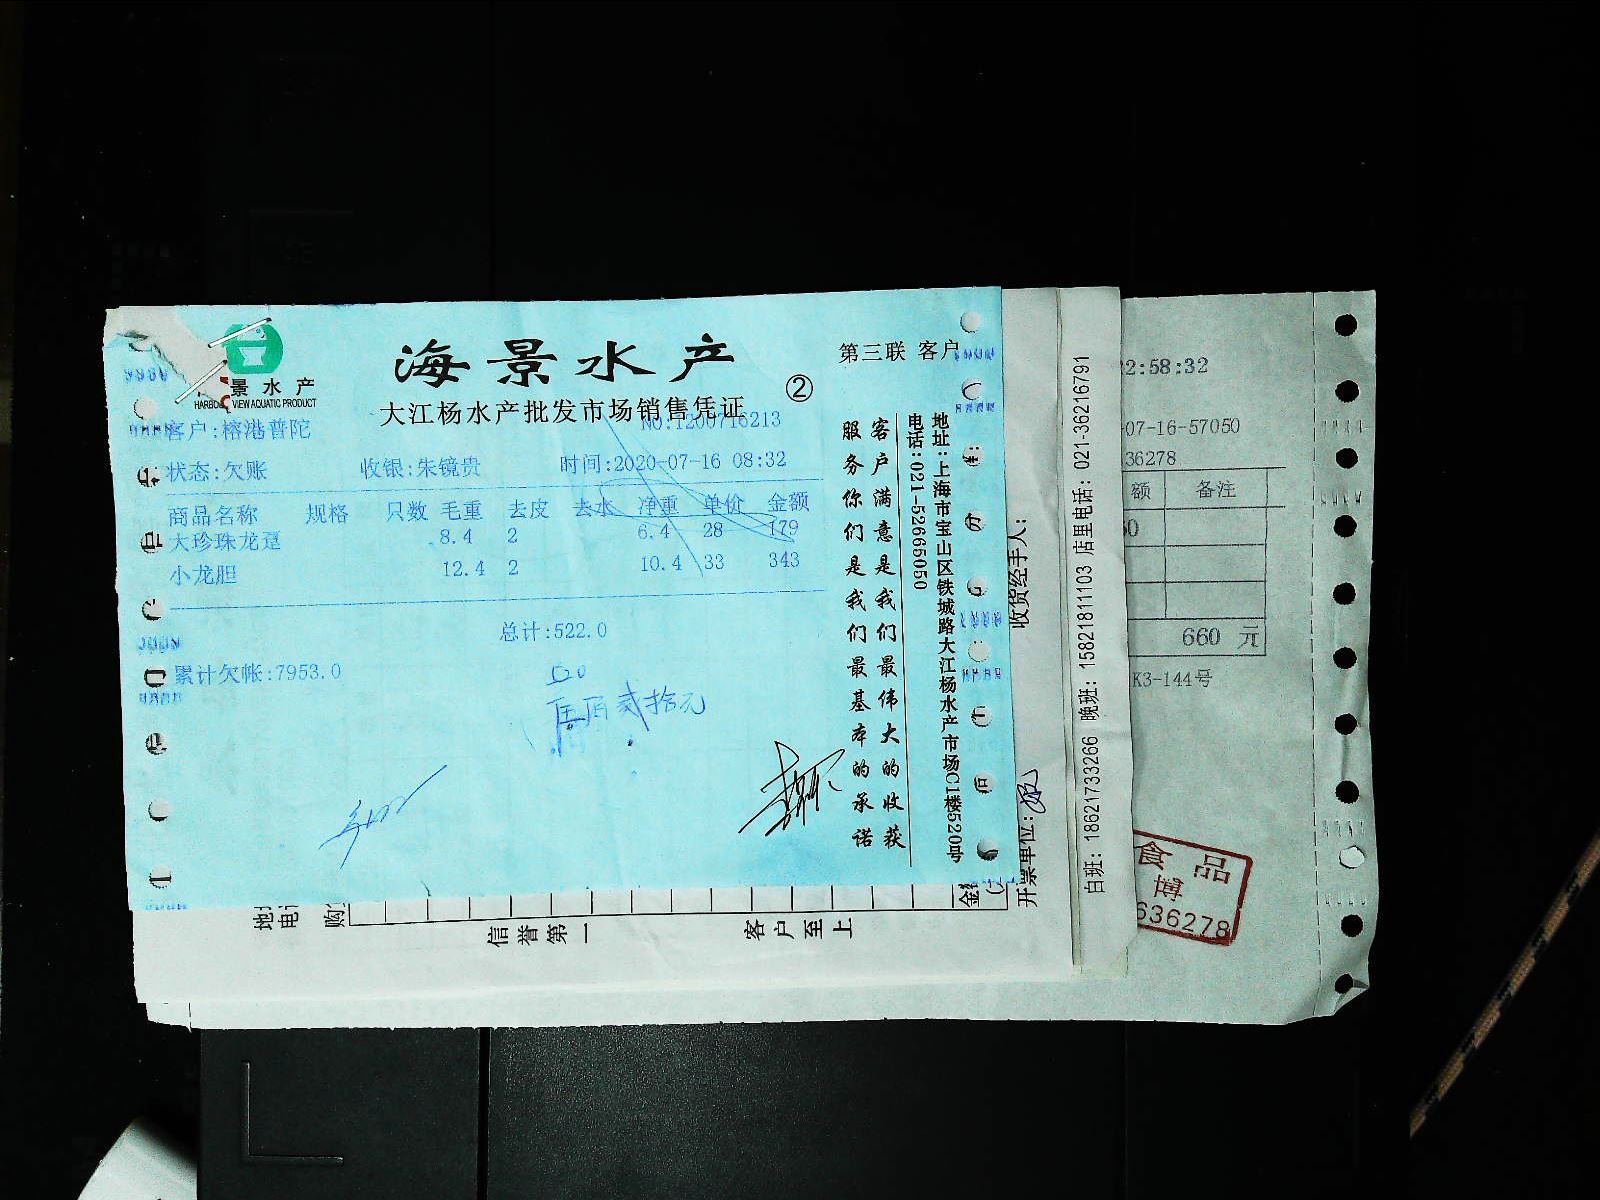 海景水产
第三联 客户
景水产
HARBO VIEW AQUATIC PRODUCT
大江杨水产批发市场销售凭证
②
客户:榕港普陀
NO:1200716213
状态:欠账 收银:朱镜贵 时间:2020-07-16 08:32
商品名称 规格 只数 毛重 去皮 去水 净重 单价 金额
大珍珠龙趸 8.4 2 6.4 28 179
小龙胆 12.4 2 10.4 33 343
总计:522.0
累计欠帐:7953.0
520
伍佰贰拾元
客户满意是我们最伟大的收获
服务你们是我们最基本的承诺
地址:上海市宝山区铁城路大江杨水产市场C1楼520号
电话:021-52665050
收货经手人:
开票单位:
白班: 18621733266 晚班: 15821811103 店里电话: 021-36216791
信誉第一
客户至上
2:58:32
-07-16-57050
36278
额 备注
660 元
K3-144号
食品
博
636278